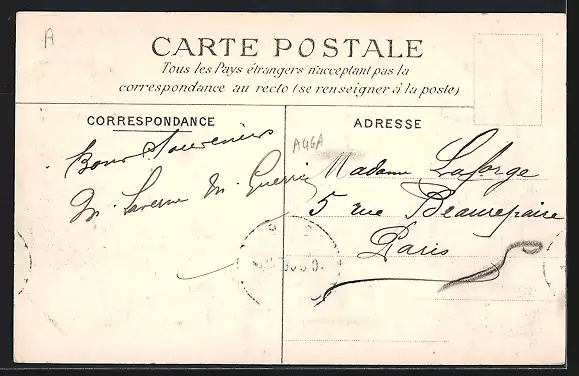 A
CARTE POSTALE
Tous les Pays étrangers n'acceptent pas la
correspondance au recto (se renseigner à la poste)
CORRESPONDANCE
Bons Souvenirs
M. Laverne M. Guerin
A46A
ADRESSE
Madame Laforge
5 rue Beaurepaire
Paris